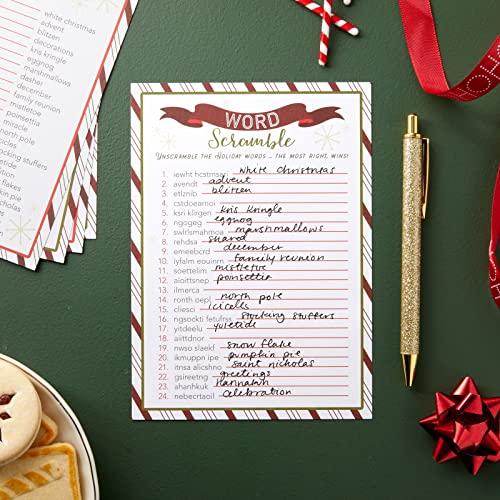 advent
blitzen
decorations
kris kringle
eggnog
marshmallows
dasher
december
family reunion
mistletoe
poinsettia
miracle
north pole
icicles
stocking stuffers
WORD
Scramble
UNSCRAMBLE THE HOLIDAY WORDS ... THE MOST RIGHT, WINS!
1. iewht hcstmari white Christmas
2. avendt advent
3. etlznib blitzen
4. cstdoearnoi
5. ksri klirgen Kris Kringle
6. ngogeg eggnog
7. swlrlsmahmoa marshmallows
8. rehdsa shared
9. emeebcrd december
10. iyfalm eouinrn family reunion
11. soettelim mistletoe
12. aioittsnep poinsettia
13. ilmerca
14. ronth oepl north pole
15. cliesci icicles
16. ngsockti fetufrss stocking stuffers
17. yitdeelu yuletide
18. aiittdnor
19. nwso slaekf snow flake
20. ikmuppn ipe pumpkin pie
21. itnsa alicshno saint nicholas
22. gsireetng greetings
23. ahanhkuk Hannakuh
24. nebecrtaoil celebration